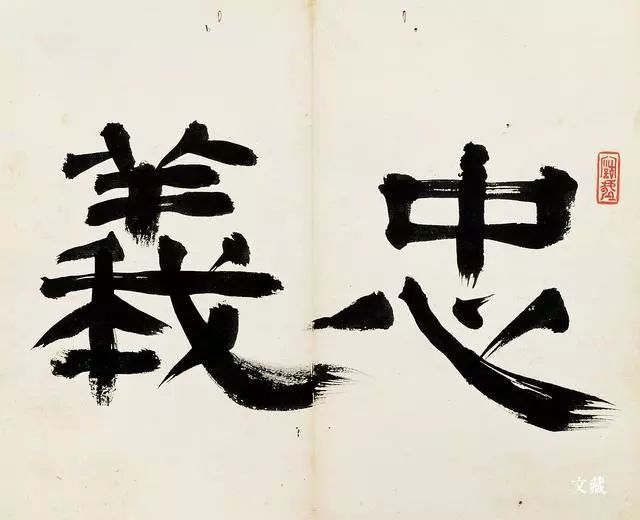 忠義
文藏